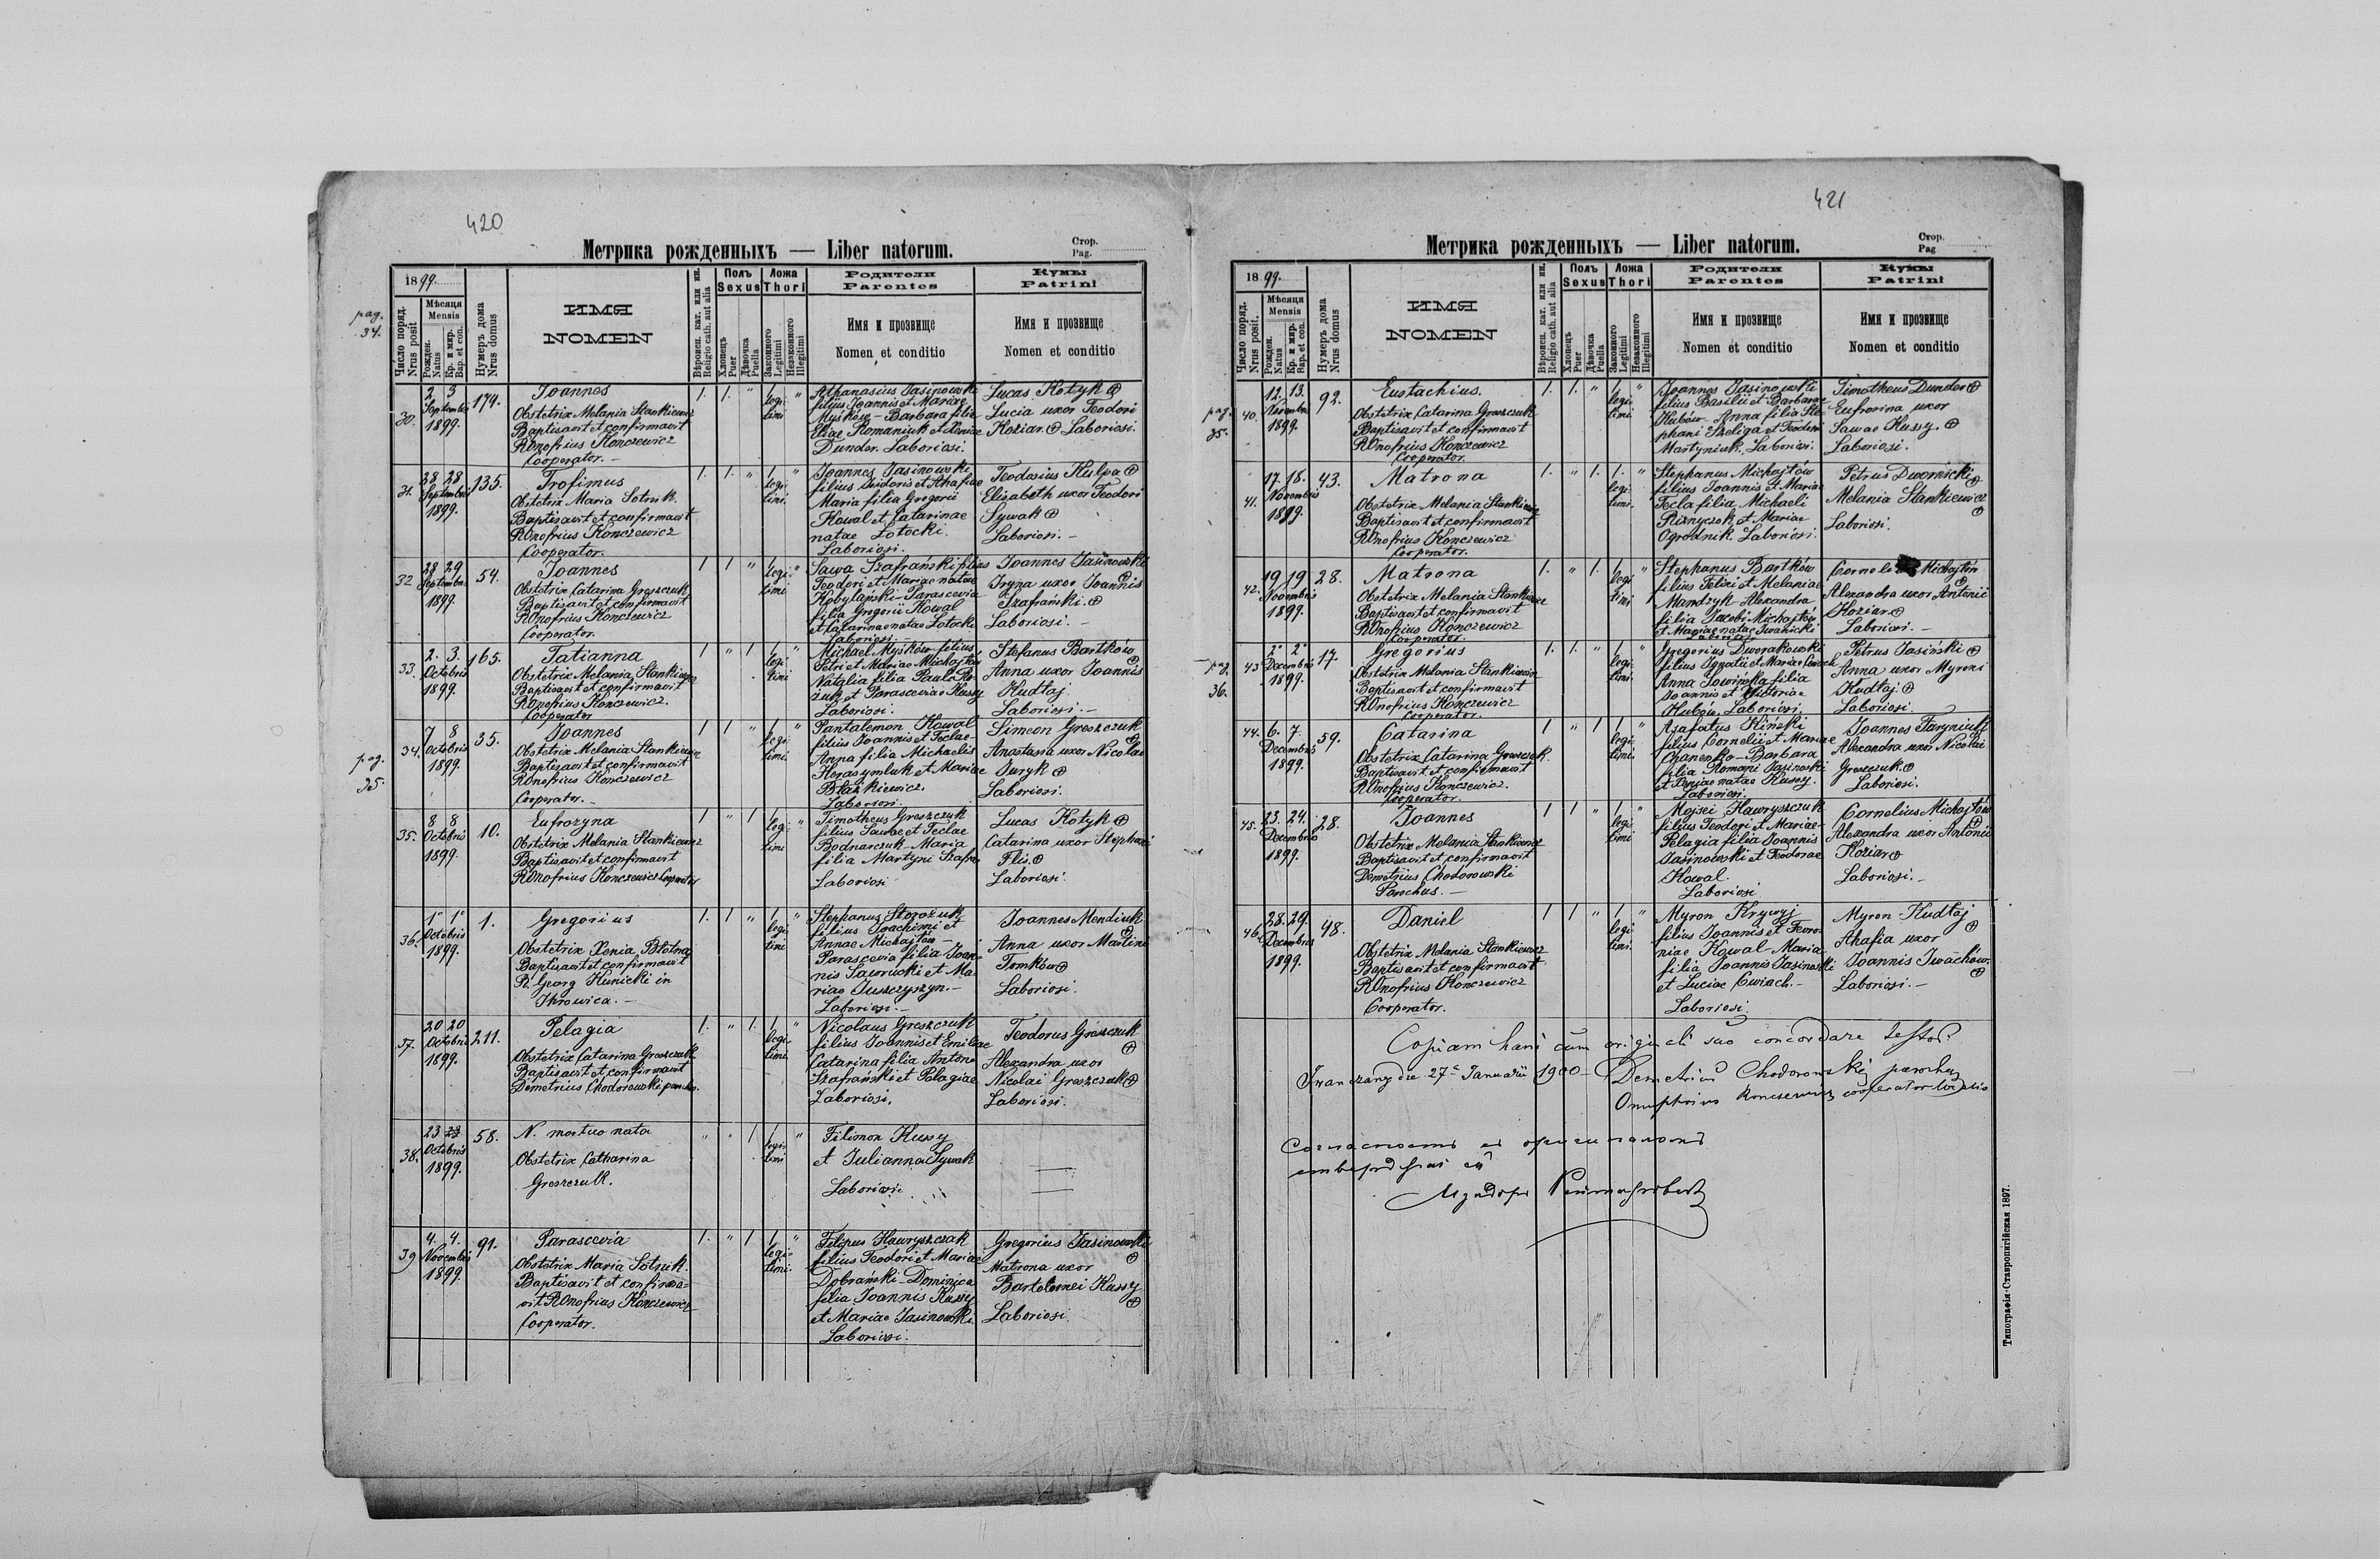 420
Метрика рожденныхъ — Liber natorum.
Стор.
Pag.
pag.
34.
1899.
Число поряд.
Nrus posit
Мѣсяця
Mensis
Рожден.
Natus
Кр. и мир.
Bap. et con.
Нумеръ дома
Nrus domus
ИМЯ
NOMEN
Вѣроисп. кат. или ин.
Religio cath. aut alia
Полъ
Sexus
Хлопець
Puer
Дѣвочка
Puella
Ложа
Thori
Законного
Legitimi
Незаконного
Illegitimi
Родители
Parentes
Имя и прозвище
Nomen et conditio
Кумы
Patrini
Имя и прозвище
Nomen et conditio
30.
2 3
Septembris
1899.
179.
Joannes
Obstetrix Melania Stankiewicz
Baptisavit et confirmavit
R Onofrius Konczewicz
Cooperator. –
1. 1. " 1 "
legi-
timi
Athanasius Jasinowski
filius Joannis et Mariae
Myśków – Barbara filia
Eliae Romaniuk et Xeniae
Dunder. Laboriosi.
Lucas Kotyk
Lucia uxor Teodori
Koziar. Laboriosi.
31.
28 28
Septembris
1899.
135.
Trofimus
Obstetrix Maria Sotnik.
Baptisavit et confirmavit
R Onofrius Konczewicz
Cooperator.
1. 1. " 1 "
legi-
timi
Joannes Jasinowski
filius Isidoris et Ahafiae
Maria filia Gregorii
Kowal et Catarinae
natae Łotocki.
Laboriosi.
Teodosius Kulpa
Elisabeth uxor Teodori
Sywak
Laboriosi. –
32
28 29
Septembris
1899.
54.
Joannes
Obstetrix Catarina Greszczuk
Baptisavit et confirmavit
R Onofrius Konczewicz
Cooperator.
1 1 " 1 "
legi-
timi
Sawa Szafrański filius
Teodori et Mariae natae
Kobylański – Parascevia
filia Gregorii Kowal
et Catarinae natae Łotocki
Laboriosi –
Joannes Jasinowski
Iryna uxor Joannis
Szafrański.
Laboriosi. –
33.
2. 3.
Octobris
1899.
165.
Tatianna
Obstetrix Melania Stankiewicz
Baptisavit et confirmavit
R Onofrius Konczewicz.
Cooperator
1 " 1 1 "
legi
timi
Michael Myśków filius
Petri et Mariae Michajłów
Natalia filia Pauli
et Parasceviae Kussy
Laboriosi.
Stefanus Bartków
Anna uxor Joannis
Kudłaj.
Laboriosi. –
pag.
35.
34.
7 8
Octobris
1899.
35.
Joannes
Obstetrix Melania Stankiewicz
Baptisavit et confirmavit
R Onofrius Konczewicz
Cooperator. –
1 1 " 1 "
legi-
timi.
Pantalemon Kowal
filius Joannis et Teclae –
Anna filia Michaelis
Herasymluk et Mariae
Błażkiewicz.
Laboriosi.
Simeon Greszczuk
Anastasia uxor Nicolai
Juryk
Laboriosi.
35.
8 8
Octobris
1899.
10.
Eufrozyna
Obstetrix Melania Stankiewicz
Baptisavit et confirmavit
R Onofrius Konczewicz Cooperator
1 " 1 1 "
legi-
timi
Timotheus Greszczuk
filius Sawae et Teclae
Bodnarczuk – Maria
filia Martyni
Laboriosi
Lucas Kotyk
Catarina uxor Stephani
Flis.
Laboriosi.
36.
1° 1°
Octobris
1899.
1.
Gregorius
Obstetrix Xenia Błotna
Baptisavit et confirmavit
R. Georg Kunicki in
Ihrowica. –
1. 1 " 1 "
legi-
timi
Stephanus Storożuk
filius Joachimi et
Annae Michajłów –
Parascevia filia Joan-
nis Saworucki et Ma-
riae Juszczyszyn. –
Laboriosi. –
Joannes Mendiuk
Anna uxor Martini
Tomków
Laboriosi.
37.
20 20
Octobris
1899.
211.
Pelagia
Obstetrix Catarina Greszczuk.
Baptisavit et confirmavit
Demetrius Chodorowski parochus.
1. " 1. 1 "
legi-
timi.
Nicolaus Greszczuk
filius Joannis et Emiliae
Catarina filia Antoni
Szafrański et Pelagiae
Laboriosi.
Teodorus Greszczuk
Alexandra uxor
Nicolai Greszczuk
Laboriosi.
38.
23 23
Octobris
1899.
58.
N. mortuo nata
Obstetrix Catharina
Greszczuk.
" " 1 1 "
legi-
timi
Filimon Kussy
et Julianna Sywak
Laboriosi.
39
4. 4.
Novembris
1899.
91.
Parascevia
Obstetrix Maria Sotnik.
Baptisavit et confirma-
vit R Onofrius Konczewicz
Cooperator.
1. " 1 1 "
legi-
timi.
Filipus Hawryszczak
filius Teodori et Mariae
Dobrański – Dominica
filia Joannis Kussy
et Mariae Jasinowski
Laboriosi.
Gregorius Jasinowski
Matrona uxor
Bartolomei Kussy
Laboriosi.
421
Метрика рожденныхъ — Liber natorum.
Стор.
Pag
1899.
Число поряд.
Nrus posit.
Мѣсяця
Mensis
Рожден.
Natus
Кр. и мир.
Bap. et con.
Нумеръ дома
Nrus domus
ИМЯ
NOMEN
Вѣроисп. кат. или ин.
Religio cath. aut alia
Полъ
Sexus
Хлопець
Puer
Дѣвочка
Puella
Ложа
Thori
Законного
Legitimi
Незаконного
Illegitimi
Родители
Parentes
Имя и прозвище
Nomen et conditio
Кумы
Patrini
Имя и прозвище
Nomen et conditio
pag.
35.
40.
12. 13.
Novembris
1899.
92.
Eustachius.
Obstetrix Catarina Greszczuk
Baptisavit et confirmavit
R Onofrius Konczewicz
Cooperator.
1. 1. " 1 "
legi-
timi.
Joannes Jasinowski
filius Basilii et Barbarae
Hubów. Anna filia Ste-
phani Szeliga et Teodora
Martyniuk. Laboriosi.
Timotheus Dunder
Eufrosina uxor
Sawae Kussy.
Laboriosi.
41.
17. 18.
Novembris
1899.
43.
Matrona
Obstetrix Melania Stankiewicz
Baptisavit et confirmavit
R Onofrius Konczewicz
Cooperator.
1. " 1. 1. "
legi-
timi.
Stephanus Michajłów
filius Joannis et Mariae
Tecla filia Michaeli
Riznyczok et Mariae
Ogrodnik. Laboriosi.
Petrus Dwornicki
Melania Stankiewicz
Laboriosi.
42.
19 19
Novembris
1899.
28.
Matrona
Obstetrix Melania Stankiewicz
Baptisavit et confirmavit
R Onofrius Konczewicz
Cooperator.
1. " 1. 1 "
legi
timi
Stephanus Bartków
filius Felixi et Melaniae
Mandzyk Alexandra
filia Jacobi Michajłów
et Mariae natae Iwanicki
Laboriosi
Michajłów
Alexandra uxor Antonii
Koziar.
Laboriosi. –
pag.
36.
43
2° 2°
Decembris
1899.
17.
Gregorius
Obstetrix Melania Stankiewicz
Baptisavit et confirmavit
R Onofrius Konczewicz
Cooperator.
1. 1. " 1 "
legi-
timi.
Gregorius Dworakowski
filius Ignatii et Mariae
Anna Sowińska filia
Joannis et Victoriae
Hubów. Laboriosi.
Petrus Jasiński
Anna uxor Myroni
Kudłaj
Laboriosi
44.
6. 7.
Decembris
1899.
59.
Catarina
Obstetrix Catarina Greszczuk.
Baptisavit et confirmavit
R Onofrius Konczewicz.
Cooperator.
1 " 1 1 "
legi-
timi.
filius Cornelii et Mariae
Barbara
filia Romani Jasinoski
et Xeniae natae Kussy.
Laboriosi.
Joannes Taryniuk
Alexandra uxor Nicolai
Greszczuk.
Laboriosi.
45.
23. 24.
Decembris
1899.
28.
Joannes
Obstetrix Melania Stankiewicz
Baptisavit et confirmavit
Demetrius Chodorowski
Parochus. –
1 1 " 1 "
legi
timi
Mojsei Hawryszczuk
filius Teodori et Mariae –
Pelagia filia Joannis
Jasinowski et Teodorae
Kowal.
Laboriosi
Cornelius Michajłów
Alexandra uxor Antonii
Koziar
Laboriosi. –
46.
28. 29.
Decembris
1899.
98.
Daniel
Obstetrix Melania Stankiewicz
Baptisavit et confirmavit
R Onofrius Konczewicz
Cooperator.
1 1 " 1 "
legi-
timi.
Myron Krywyj
filius Joannis et Fewro-
niae Kowal – Maria
filia Joannis Jasinoski
et Luciae Cwiach. –
Laboriosi.
Myron Kudłaj
Ahafia uxor
Joannis Iwachów
Laboriosi. –
Copiam hanc cum originali suo concordare testor.
Iwanczany die 27° Januarii 1900 – Demetrius Chodorowski parochus
Onuphrius Konczewicz cooperator
Типографія Ставропигійская 1897.